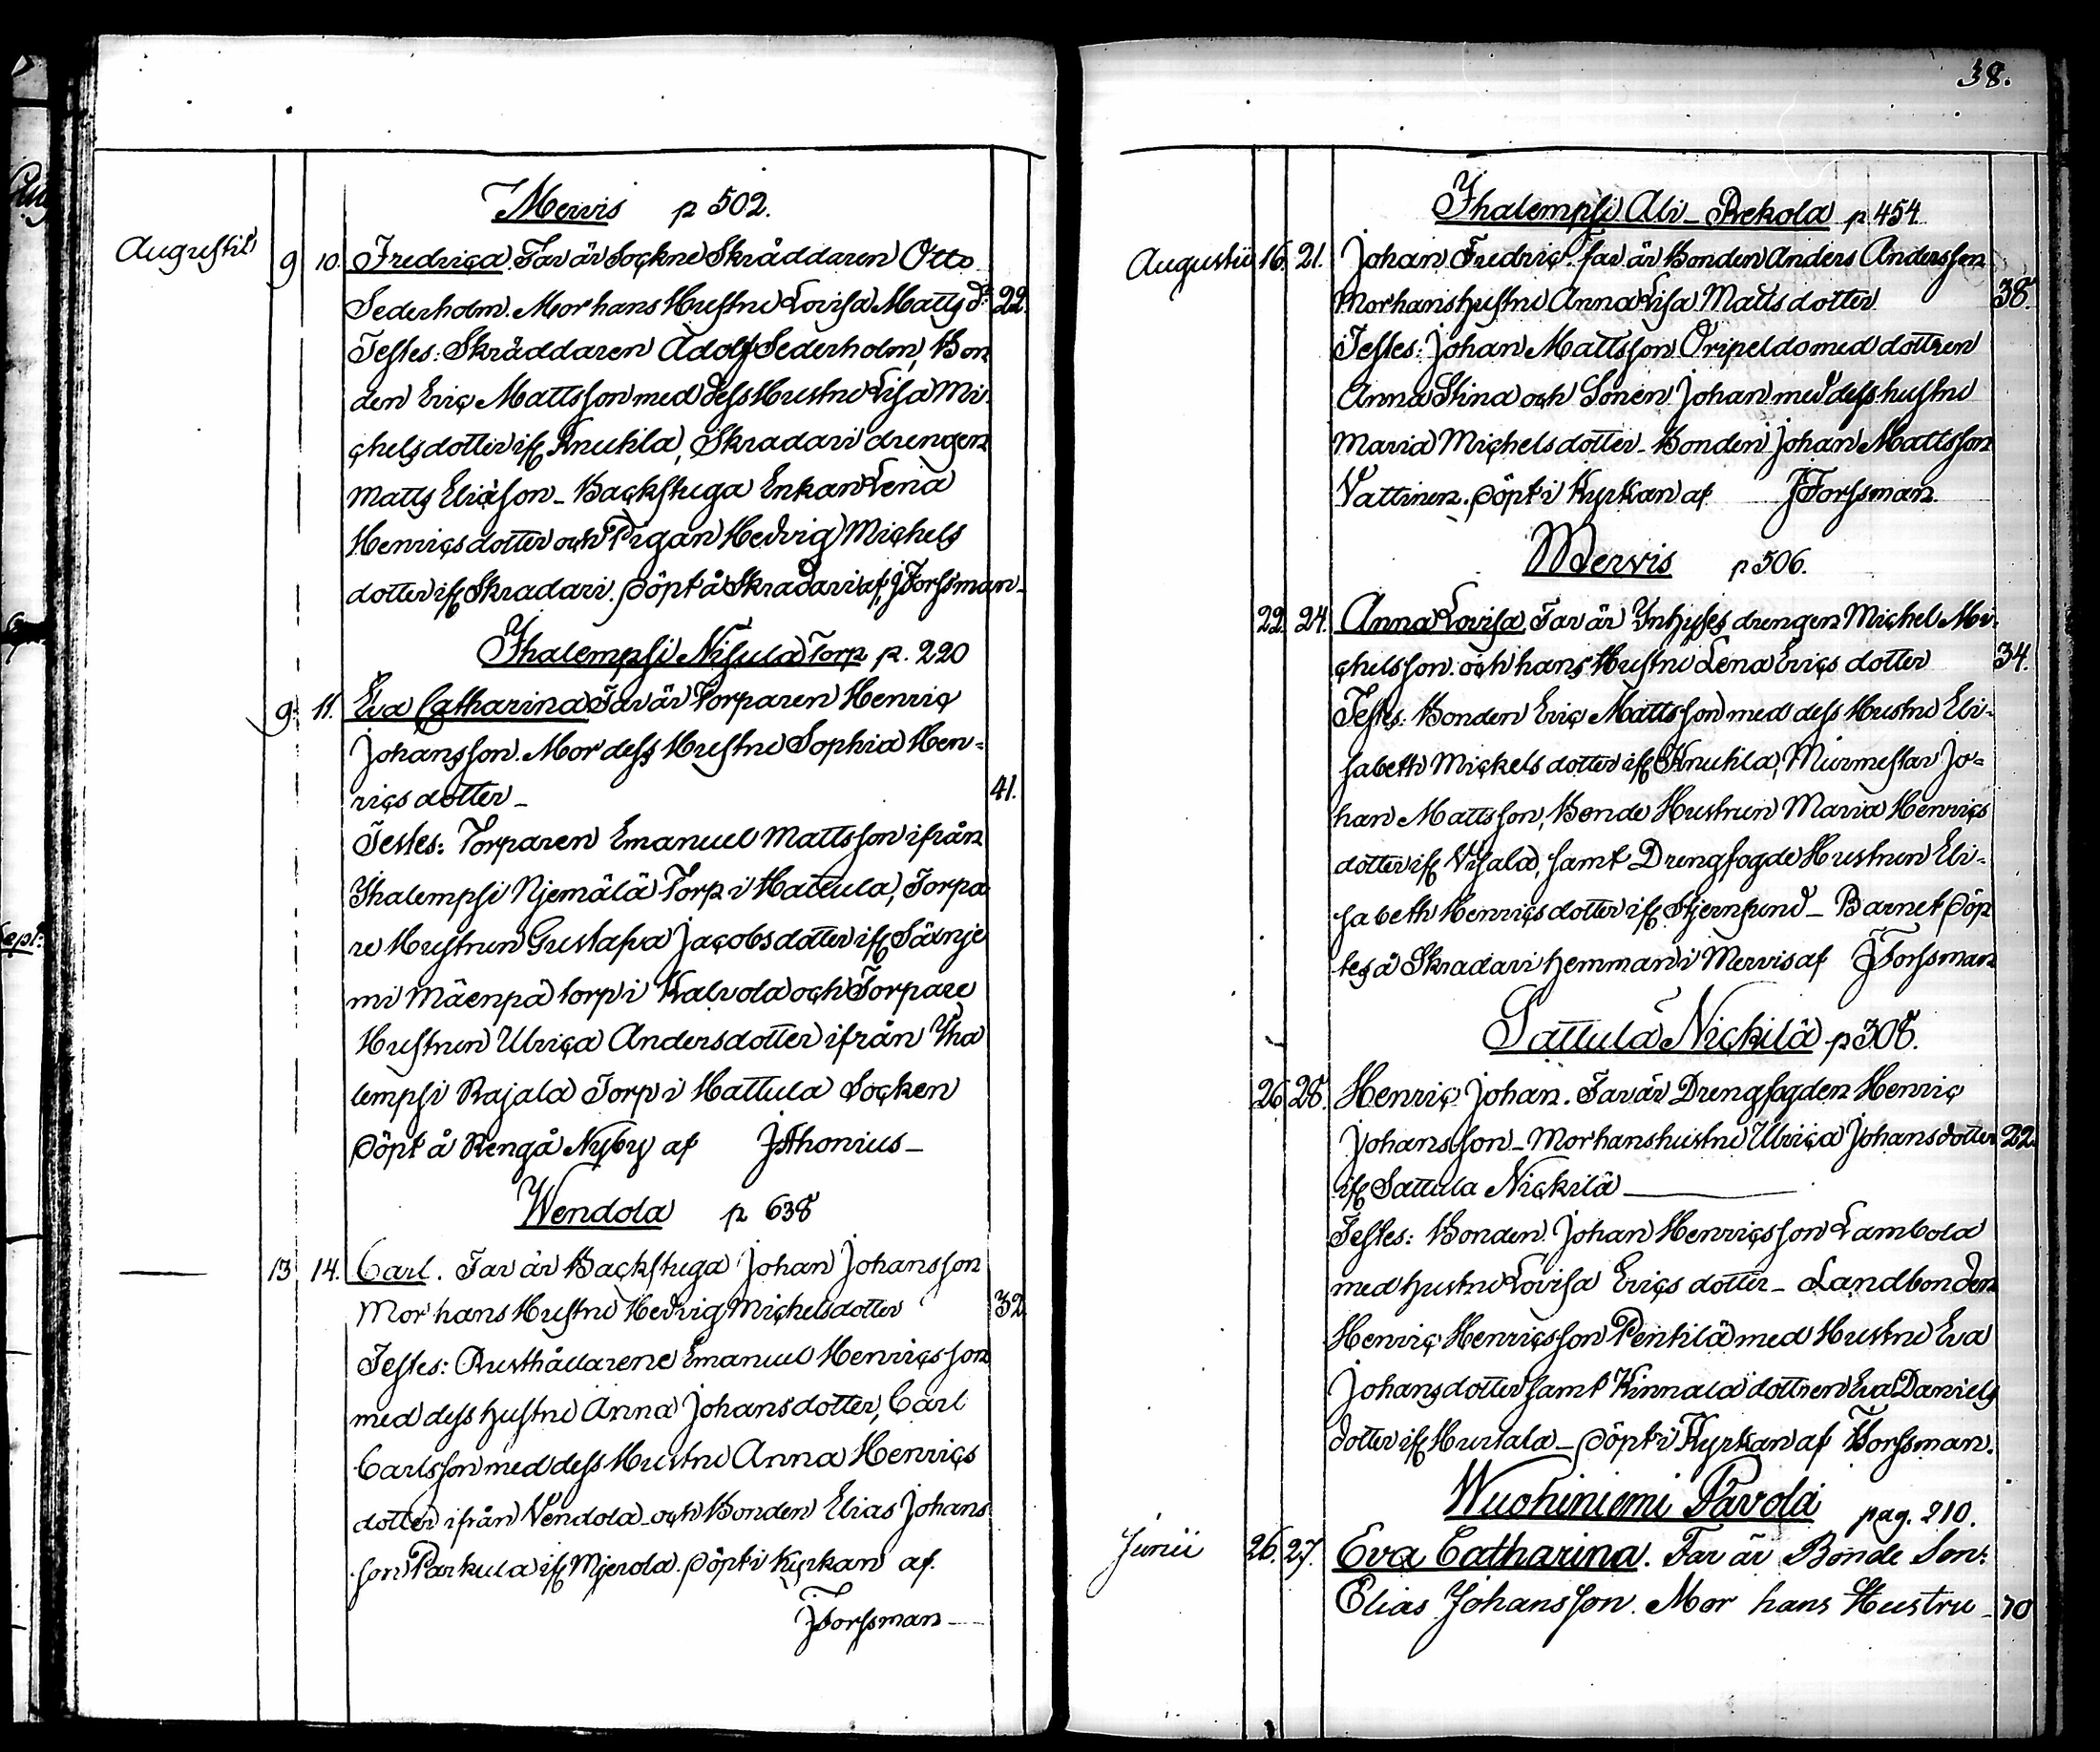 Mervis p 502.
Augustii 9 10. Fredrica. Far är Sockne Skräddaren Otto
Sederholm. Mor hans Hustru Lovisa Matts dr 22.
Testes: Skräddaren Adolf Sederholm, Bon
den Eric Mattsson med dess Hustru Lisa Mi-
chels dotter ifr Knuttila, Skradari drengen
Matts Eliasson - Backstuga Enkan Lena
Henrics dotter och Pigan Hedvig Michels
dotter ifr Skradari. Döpt å Skradari af J Forssman -
Ihalempsi Nisula Torp p. 220
9. 11. Eva Catharina Far är Torparen Henric
Johansson. Mor dess Hustru Sophia Hen-
rics dotter - 41.
Testes: Torparen Emanuel Mattsson ifrån
Ihalempsi Njemälä Torp i Hattula, Torpa
re Hustrun Gustafva Jacobs dotter ifr Säxnje
mi Mäenpä torp i Kalvola och Torpare
Hustrun Ulrica Andersdotter ifrån Iha
lempsi Rajala Torp i Hattula Socken
Döpt å Rengå Nyby af J Ahonius -
Wendola p 638
— 13 14. Carl. Far är Backstuga Johan Johansson
Mor hans Hustru Hedvig Michelsdotter 32
Testes: Rusthållarene Emanuel Henricsson
med dess hustru Anna Johansdotter, Carl
Carlsson med dess Hustru Anna Henrics
dotter ifrån Vendola - och Bonden Elias Johans
son Parkula ifr Mjerola. Döpt i Kyrkan af
J Forssman -
38.
Ihalempsi Ali - Rekola p 454
Augustii 16. 21. Johan Fredric. far är Bonden Anders Andersson
Mor hans hustru Anna Lisa Matts dotter 38.
Testes: Johan Mattsson Oripeldo med dottren
Anna Stina och Sonen Johan med dess hustru
Maria Michels dotter - Bonden Johan Mattsson
Vattinen. Döpt i Kyrkan af J Forssman.
Mervis p 506.
22. 24. Anna Lovisa Far är Inhyses drengen Michel Mi-
chelsson. och hans Hustru Lena Erics dotter 34.
Testes: Bonden Eric Mattsson med dess Hustru Eli-
sabeth Mickels dotter ifr Knuttila, Murmestar Jo-
han Mattsson, Bonde Hustrun Maria Henrics
dotter ifr Visala, samt Drengfogde Hustrun Eli-
sabeth Henrics dotter ifr Stjernsund - Barnet Döp
tes å Skradari hemman i Mervis af J Forssman
Sattula Nickilä p 308.
26 28. Henric Johan. Far är Drengfogden Henric
Johansson - Mor hans hustru Ulrica Johansdotter 22.
ifr Sattula Nickilä —
Testes: Bonden Johan Henricsson Lambola
med hustru Lovisa Erics dotter - Landbonden
Henric Henricsson Pentilä med Hustru Eva
Johansdotter samt Kinnala dottren Eva Daniels
dotter ifr Hurtala - Döpt i Kyrkan af Forssman.
Wuohiniemi Pavola pag. 210.
Junii 26. 27. Eva Catharina. Far är Bonde Son:
Elias Johansson. Mor hans Hustru - 70